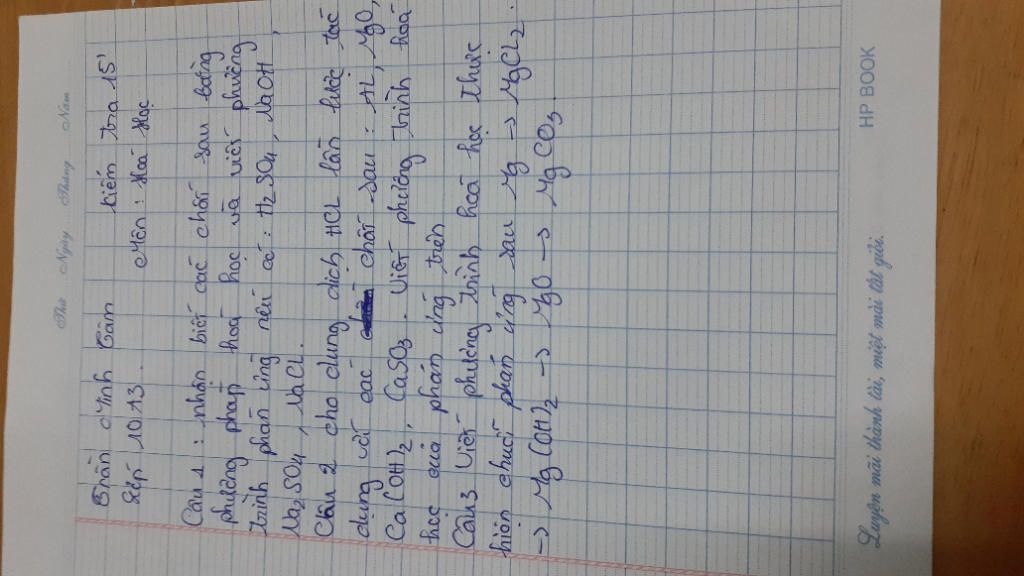 Thứ Ngày Tháng Năm
Trần Minh Cần kiến tra 15'
Lớp 10A3. Môn : Hoá Học
Câu 1 : nhận biết các chất sau bằng
phương pháp hoá học và viết phương
trình phản ứng nếu có : H2SO4, NaOH,
Na2SO4, NaCl.
Câu 2 cho dung dịch HCl lần lượt tác
dụng với các chất sau : Al, MgO,
Ca(OH)2, CaSO3. Viết phương trình hoá
học của phản ứng trên
Câu 3 Viết phương trình hoá học thực
hiện chuỗi phản ứng sau Mg -> MgCl2.
-> Mg(OH)2 -> MgO -> MgCO3.
Luyện mãi thành tài, miệt mài tất giỏi.
HP BOOK